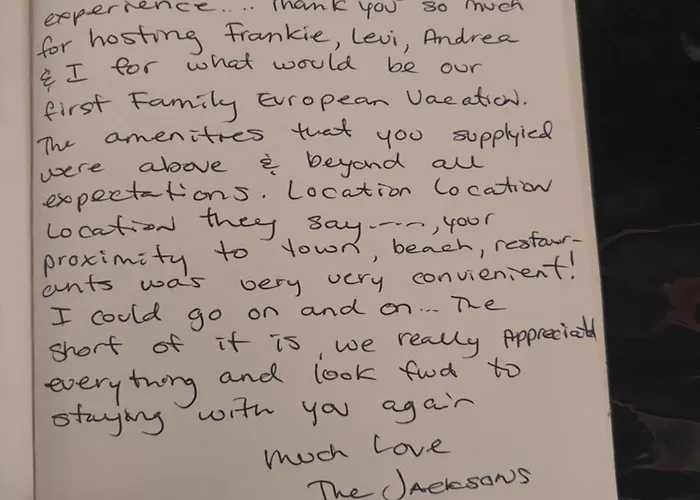 experience.... Thank you so much
for hosting Frankie, Levi, Andrea
& I for what would be our
first Family European Vacation.
The amenitres that you supplyied
were above & beyond all
expectations. Location Location
Location they say----, your
proximity to town, beach, restaur-
ants was very very convienient!
I could go on and on... The
short of it is, we really Appreciatd
everything and look fwd to
staying with you again
Much Love
The Jacksons